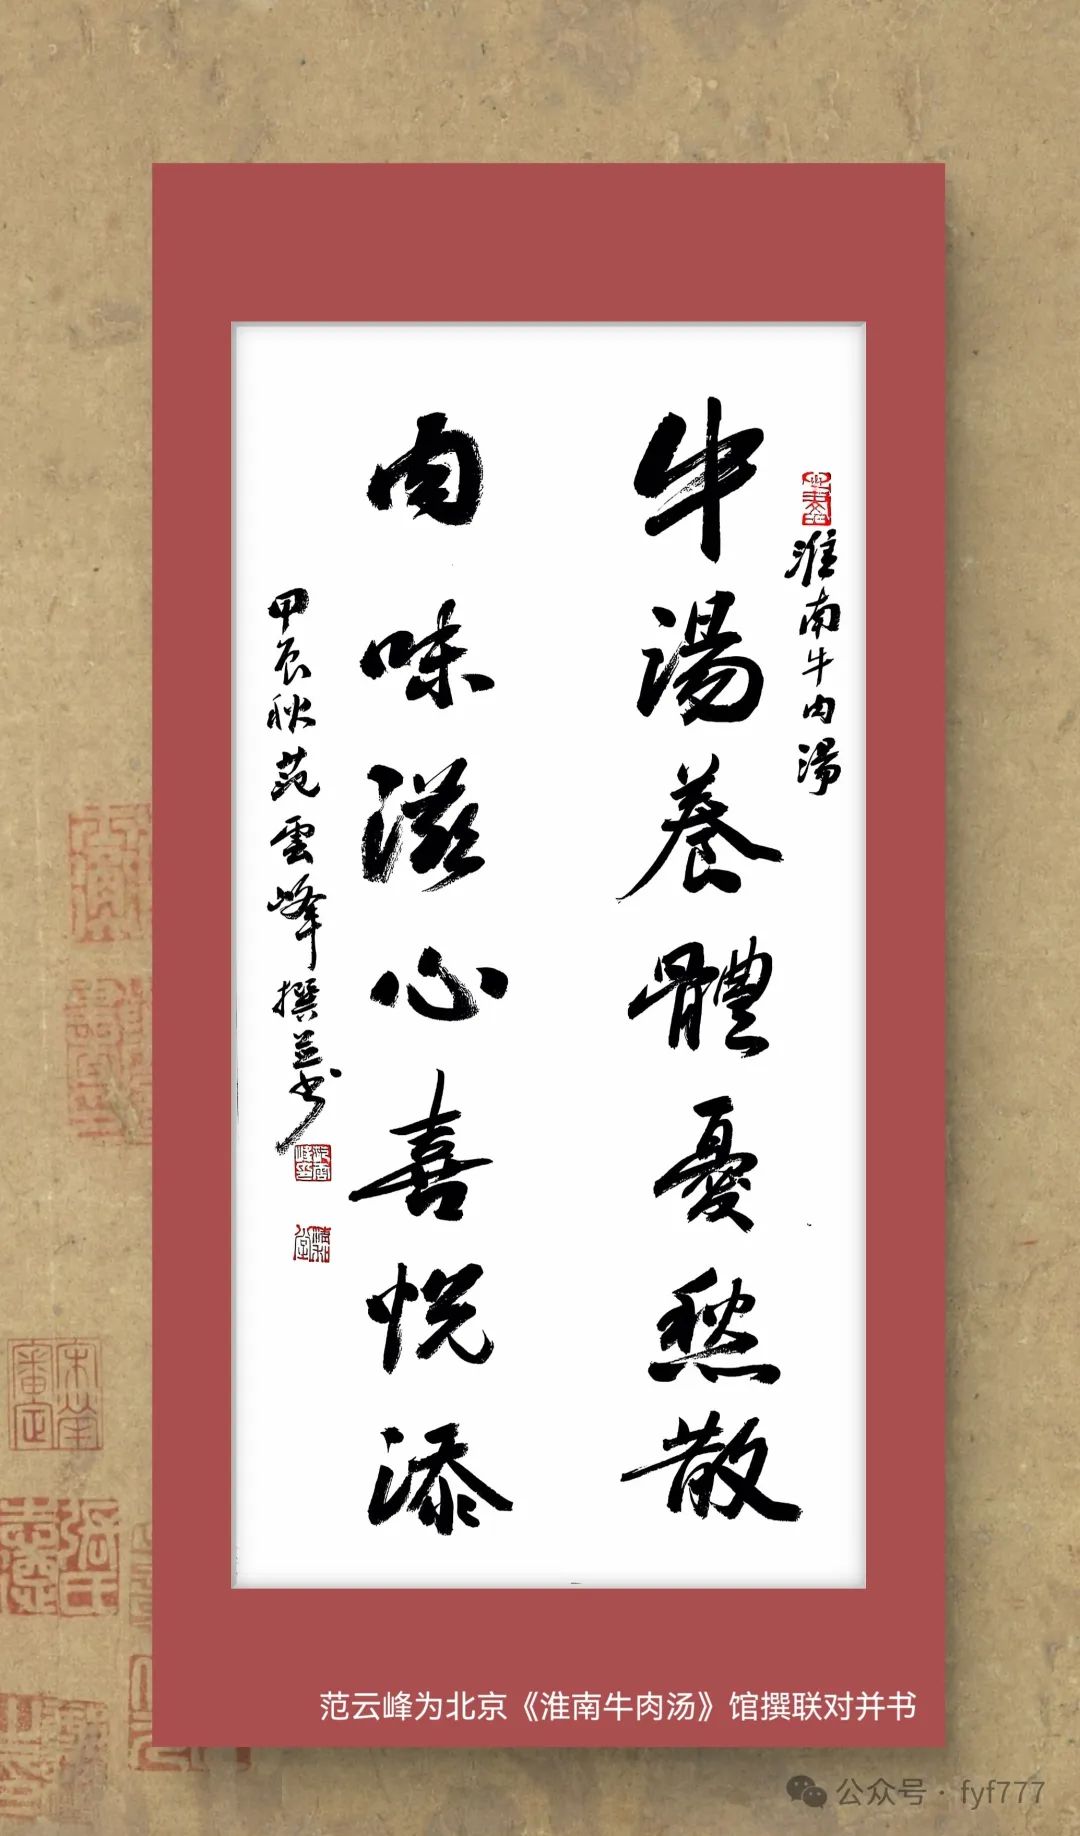 淮南牛肉湯
牛湯養體憂愁散
肉味滋心喜悦添
甲辰秋范雲峰撰並书
范云峰为北京《淮南牛肉汤》馆撰联对并书
公众号·fyf777